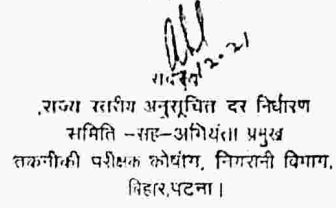 12.21
सदस्य
राज्य स्तरीय अनुसूचित दर निर्धारण
समिति -सह-अभियंता प्रमुख
तकनीकी परीक्षक कोषांग, निगरानी विभाग,
बिहार,पटना।